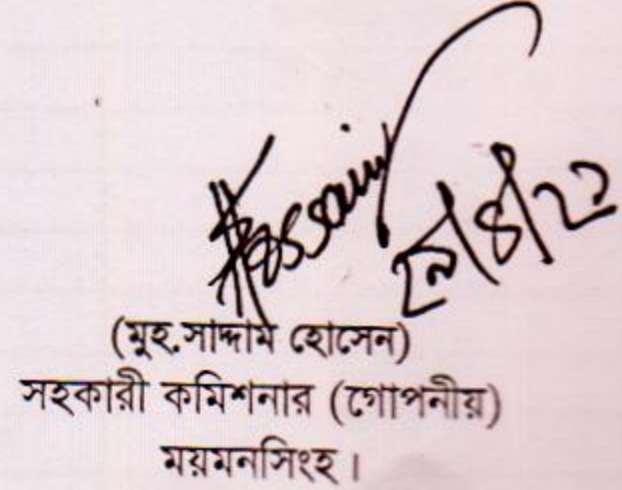 Hossain
(মুহ.সাদ্দাম হোসেন)
সহকারী কমিশনার (গোপনীয়)
ময়মনসিংহ।